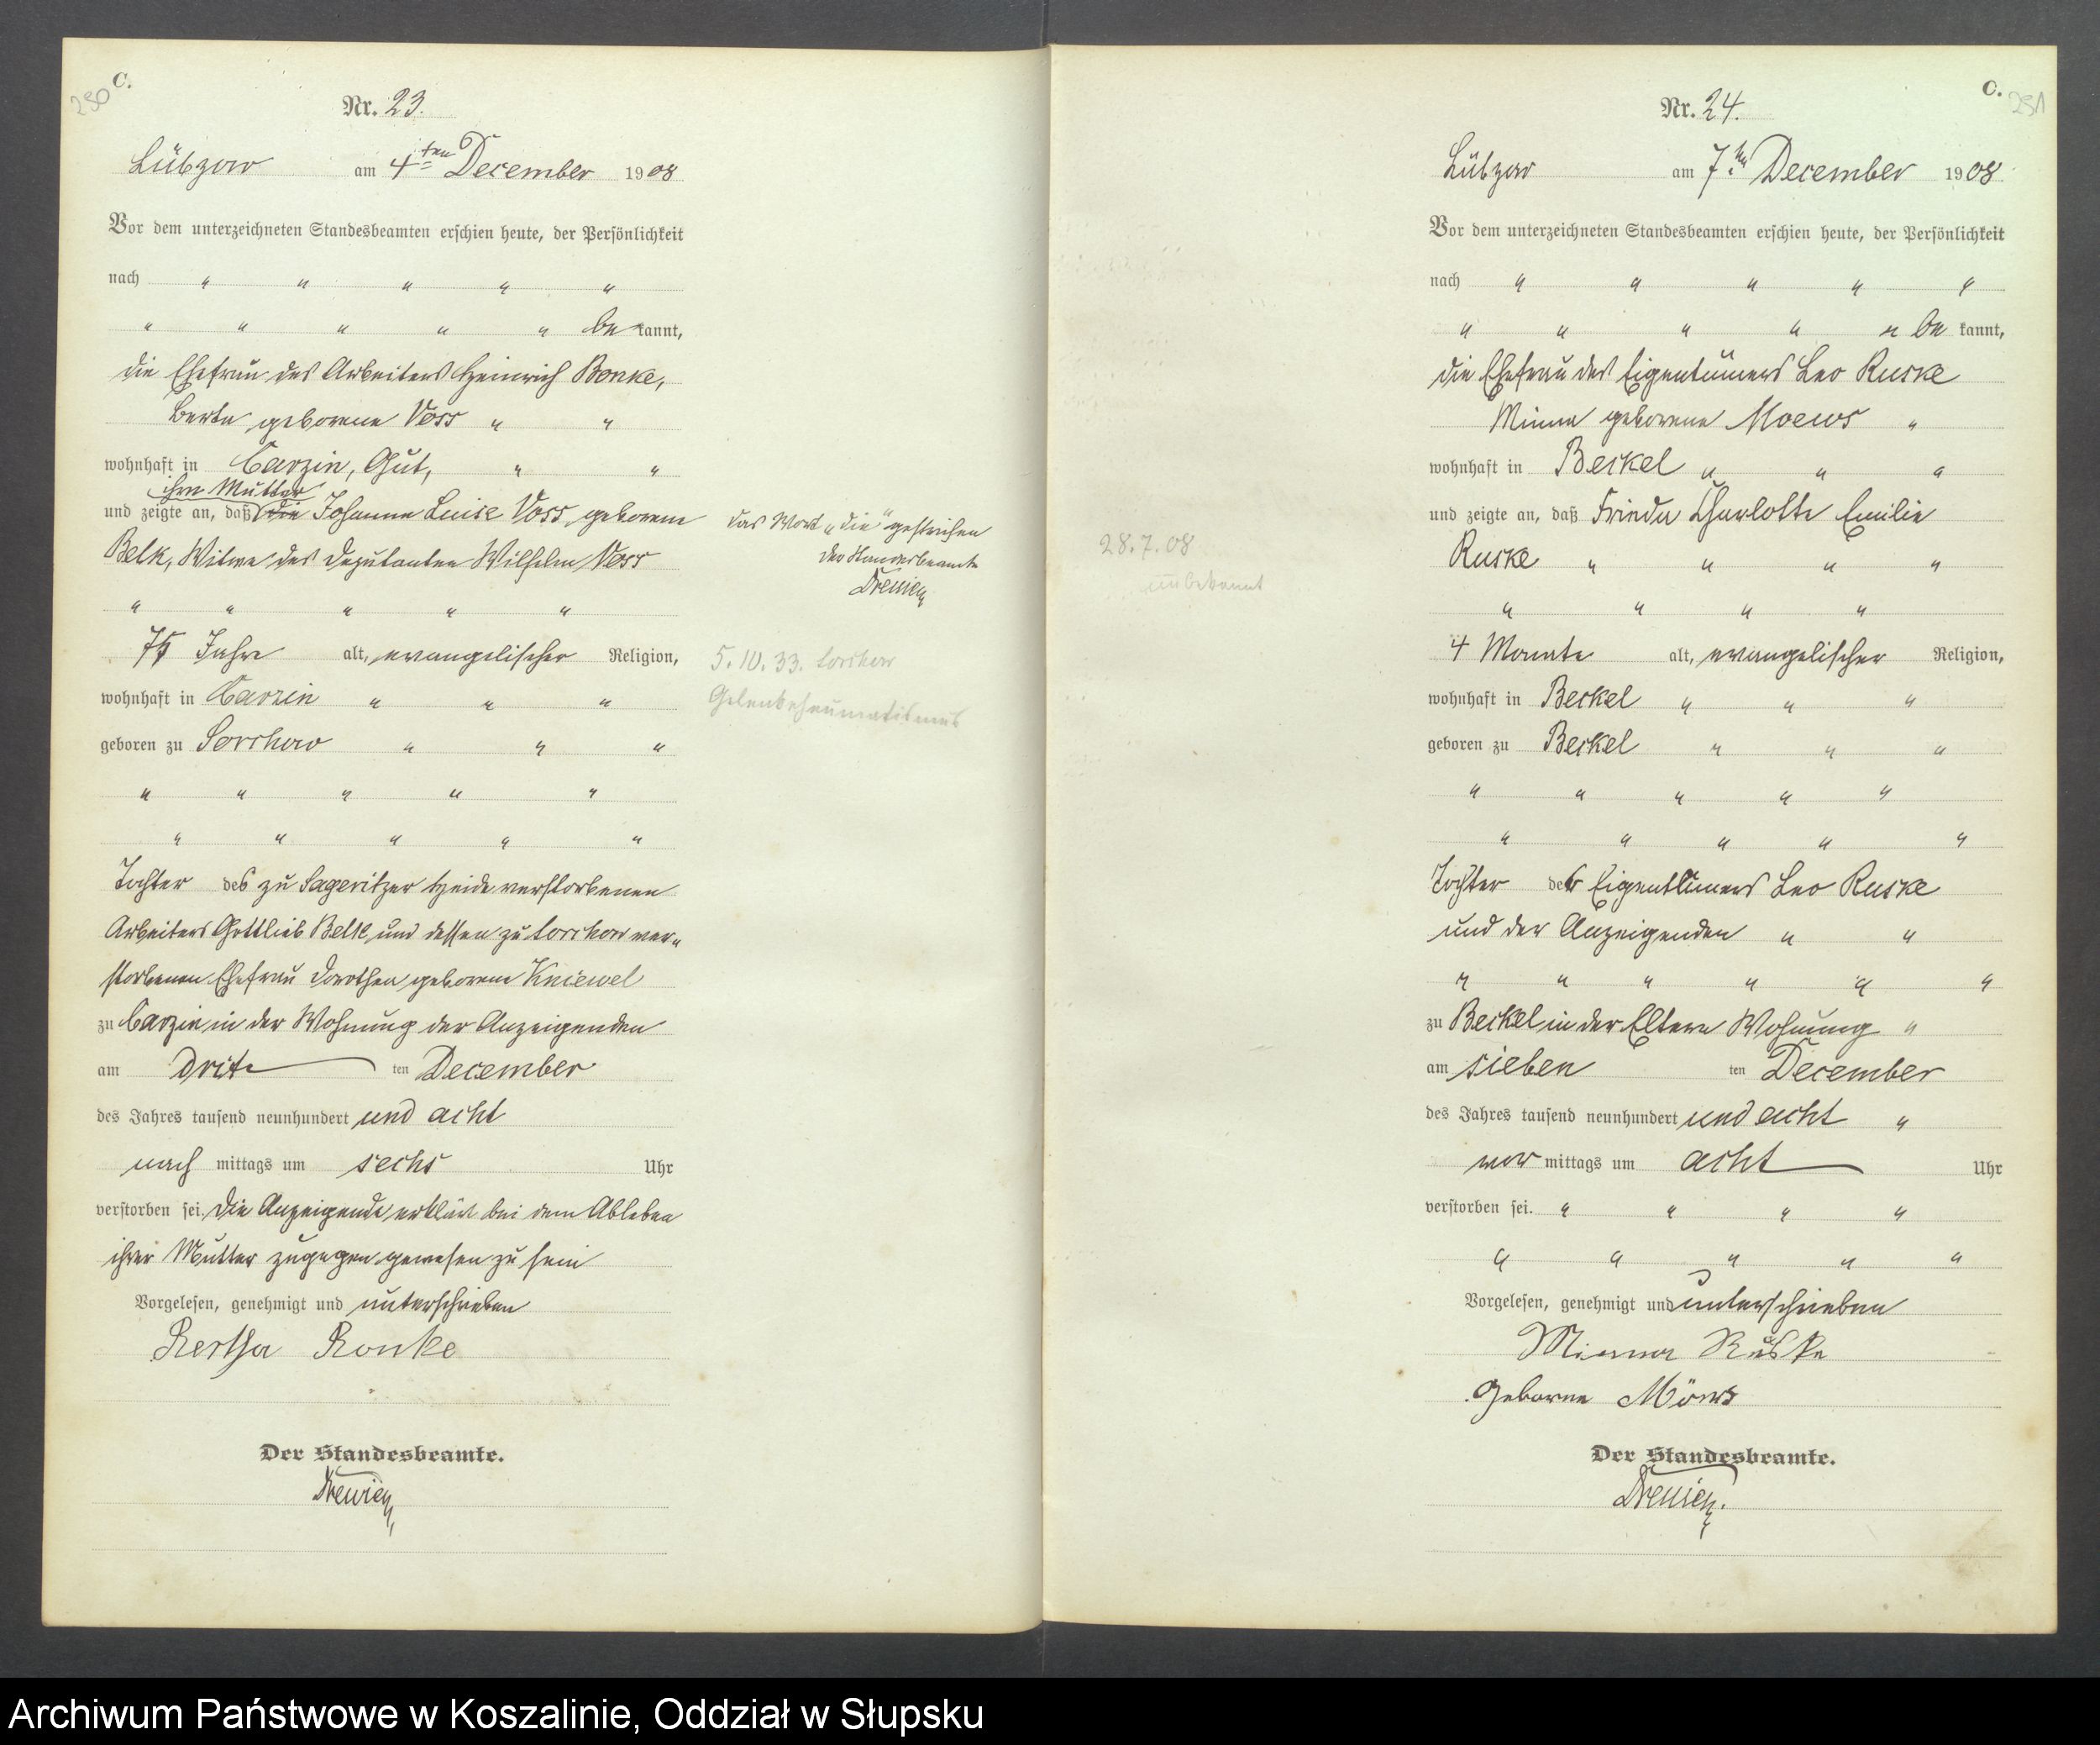 C.
230
Nr. 23.
Lübzow am 4ten December 1908
Vor dem unterzeichneten Standesbeamten erschien heute, der Persönlichkeit
nach " " " " "
" " " " " be kannt,
die Ehefrau des Arbeiters Heinrich Bonke,
Berta geborene Voss " "
wohnhaft in Carzin, Gut, " "
ihre Mutter
und zeigte an, daß die Johanna Luise Voss, geborene
Belk, Witwe des Deputanten Wilhelm Voss
" " " " "
75 Jahre alt, evangelischer Religion,
wohnhaft in Carzin " " "
geboren zu Sorchow " " "
" " " " "
" " " " "
Tochter des zu Sageritzer Heide verstorbenen
Arbeiters Gottlieb Belk und dessen zu Sorchow ver„
storbenen Ehefrau Dorothea geborene Kniewel
zu Carzin, in der Wohnung der Anzeigenden
am drite ten December
des Jahres tausend neunhundert und acht
nach mittags um sechs Uhr
verstorben sei. Die Anzeigende erklärt bei dem Ableben
ihrer Mutter zugegen gewesen zu sein
Vorgelesen, genehmigt und unterschrieben
Bertha Bonke
Der Standesbeamte.
das Wort „die" gestrichen
der Standesbeamte
5.10.33. Sorchow
Gelenkrheumatismus
C.
231
Nr. 24.
Lübzow am 7ten December 1908
Vor dem unterzeichneten Standesbeamten erschien heute, der Persönlichkeit
nach " " " " "
" " " " " be kannt,
die Ehefrau des Eigentümers Leo Ruske
Minna geborene Moews "
wohnhaft in Beckel " " "
und zeigte an, daß Frieda Charlotte Emilie
Ruske " " " "
" " " "
4 Monate alt, evangelischer Religion,
wohnhaft in Beckel " " "
geboren zu Beckel " " "
" " " " "
" " " " "
Tochter des Eigentümers Leo Ruske
und der Anzeigenden " "
" " " " " "
zu Beckel in der Eltern Wohnung "
am sieben ten December
des Jahres tausend neunhundert und acht "
vor mittags um acht Uhr
verstorben sei. " " " "
" " " " "
Vorgelesen, genehmigt und unterschrieben
Minna Ruske
geborne Möws
Der Standesbeamte.
28.7.08
unbekannt
Archiwum Państwowe w Koszalinie, Oddział w Słupsku